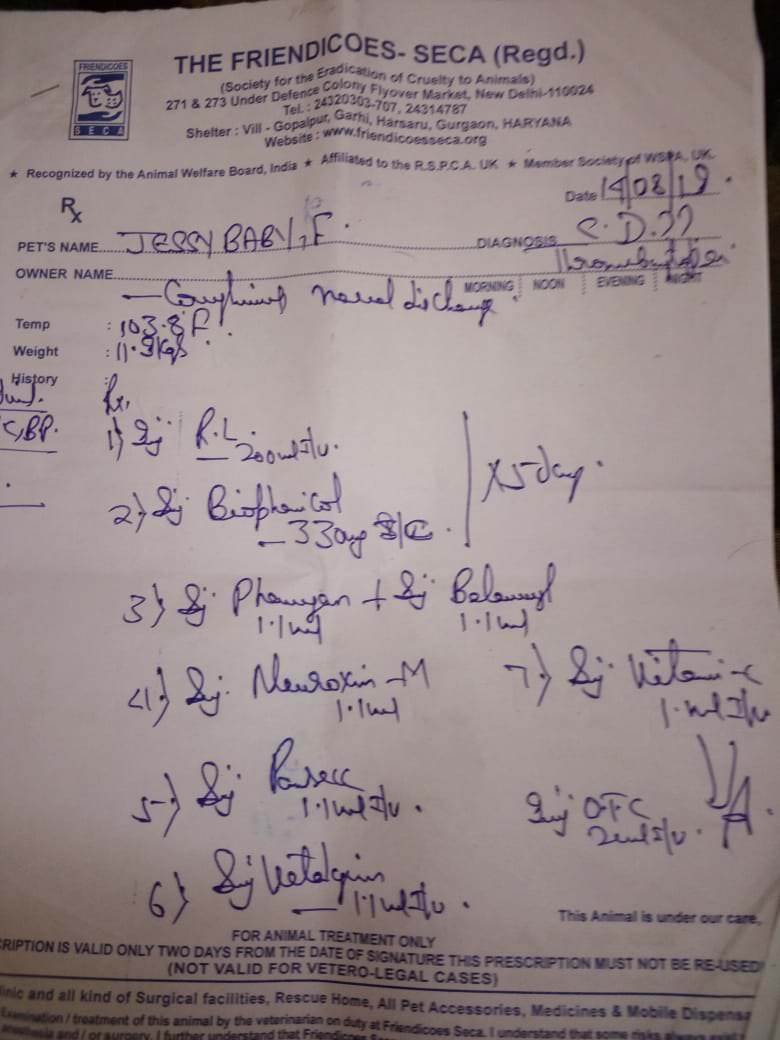 FRIENDICOES
SECA
THE FRIENDICOES- SECA (Regd.)
(Society for the Eradication of Cruelty to Animals)
271 & 273 Under Defence Colony Flyover Market, New Delhi-110024
Tel.: 24320303-707, 24314787
Shelter : Vill - Gopalpur, Garhi, Harsaru, Gurgaon, HARYANA
Website : www.friendicoesseca.org
★ Recognized by the Animal Welfare Board, India ★ Affiliated to the R.S.P.C.A. UK ★ Member Society of WSPA, UK.
Rx
Date 14/08/19
PET'S NAME JESSY BABY, F. DIAGNOSIS C.D.??
OWNER NAME
MORNING NOON EVENING NIGHT
— Coughing nasal discharge
Temp : 103.8 F.
Weight : 11.3 Kgs
History :
CBP.
Rx,
1) Inj R.L.
— 200ml I/v.
2) Inj Biophenicol
— 330mg S/C.
x 5 day.
3) Inj Phenergan + Inj
1.1ml 1.1ml
4) Inj. Neuroxin-M
1.1ml
7) Inj. Vitamin-c
1.ml I/v
5) Inj
1.1ml I/v.
Inj OFC
2ml I/v.
6) Inj Vetalgin
— 1.1ml I/v.
This Animal is under our care.
FOR ANIMAL TREATMENT ONLY
CRIPTION IS VALID ONLY TWO DAYS FROM THE DATE OF SIGNATURE THIS PRESCRIPTION MUST NOT BE RE-USED
(NOT VALID FOR VETERO-LEGAL CASES)
linic and all kind of Surgical facilities, Rescue Home, All Pet Accessories, Medicines & Mobile Dispensa
Examination / treatment of this animal by the veterinarian on duty at Friendicoes Seca. I understand that some risks always exist
anesthesia and / or surgery. I further understand that Friendicoes